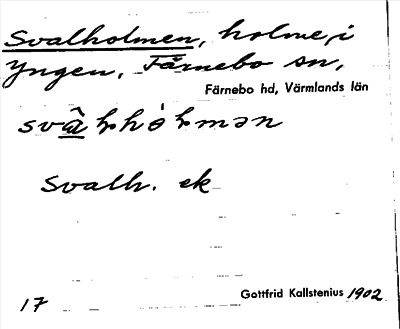 Svalholmen, holme, i
Yngen, Färnebo sn,
Färnebo hd, Värmlands län
Svalh. ek
17
Gottfrid Kallstenius 1902